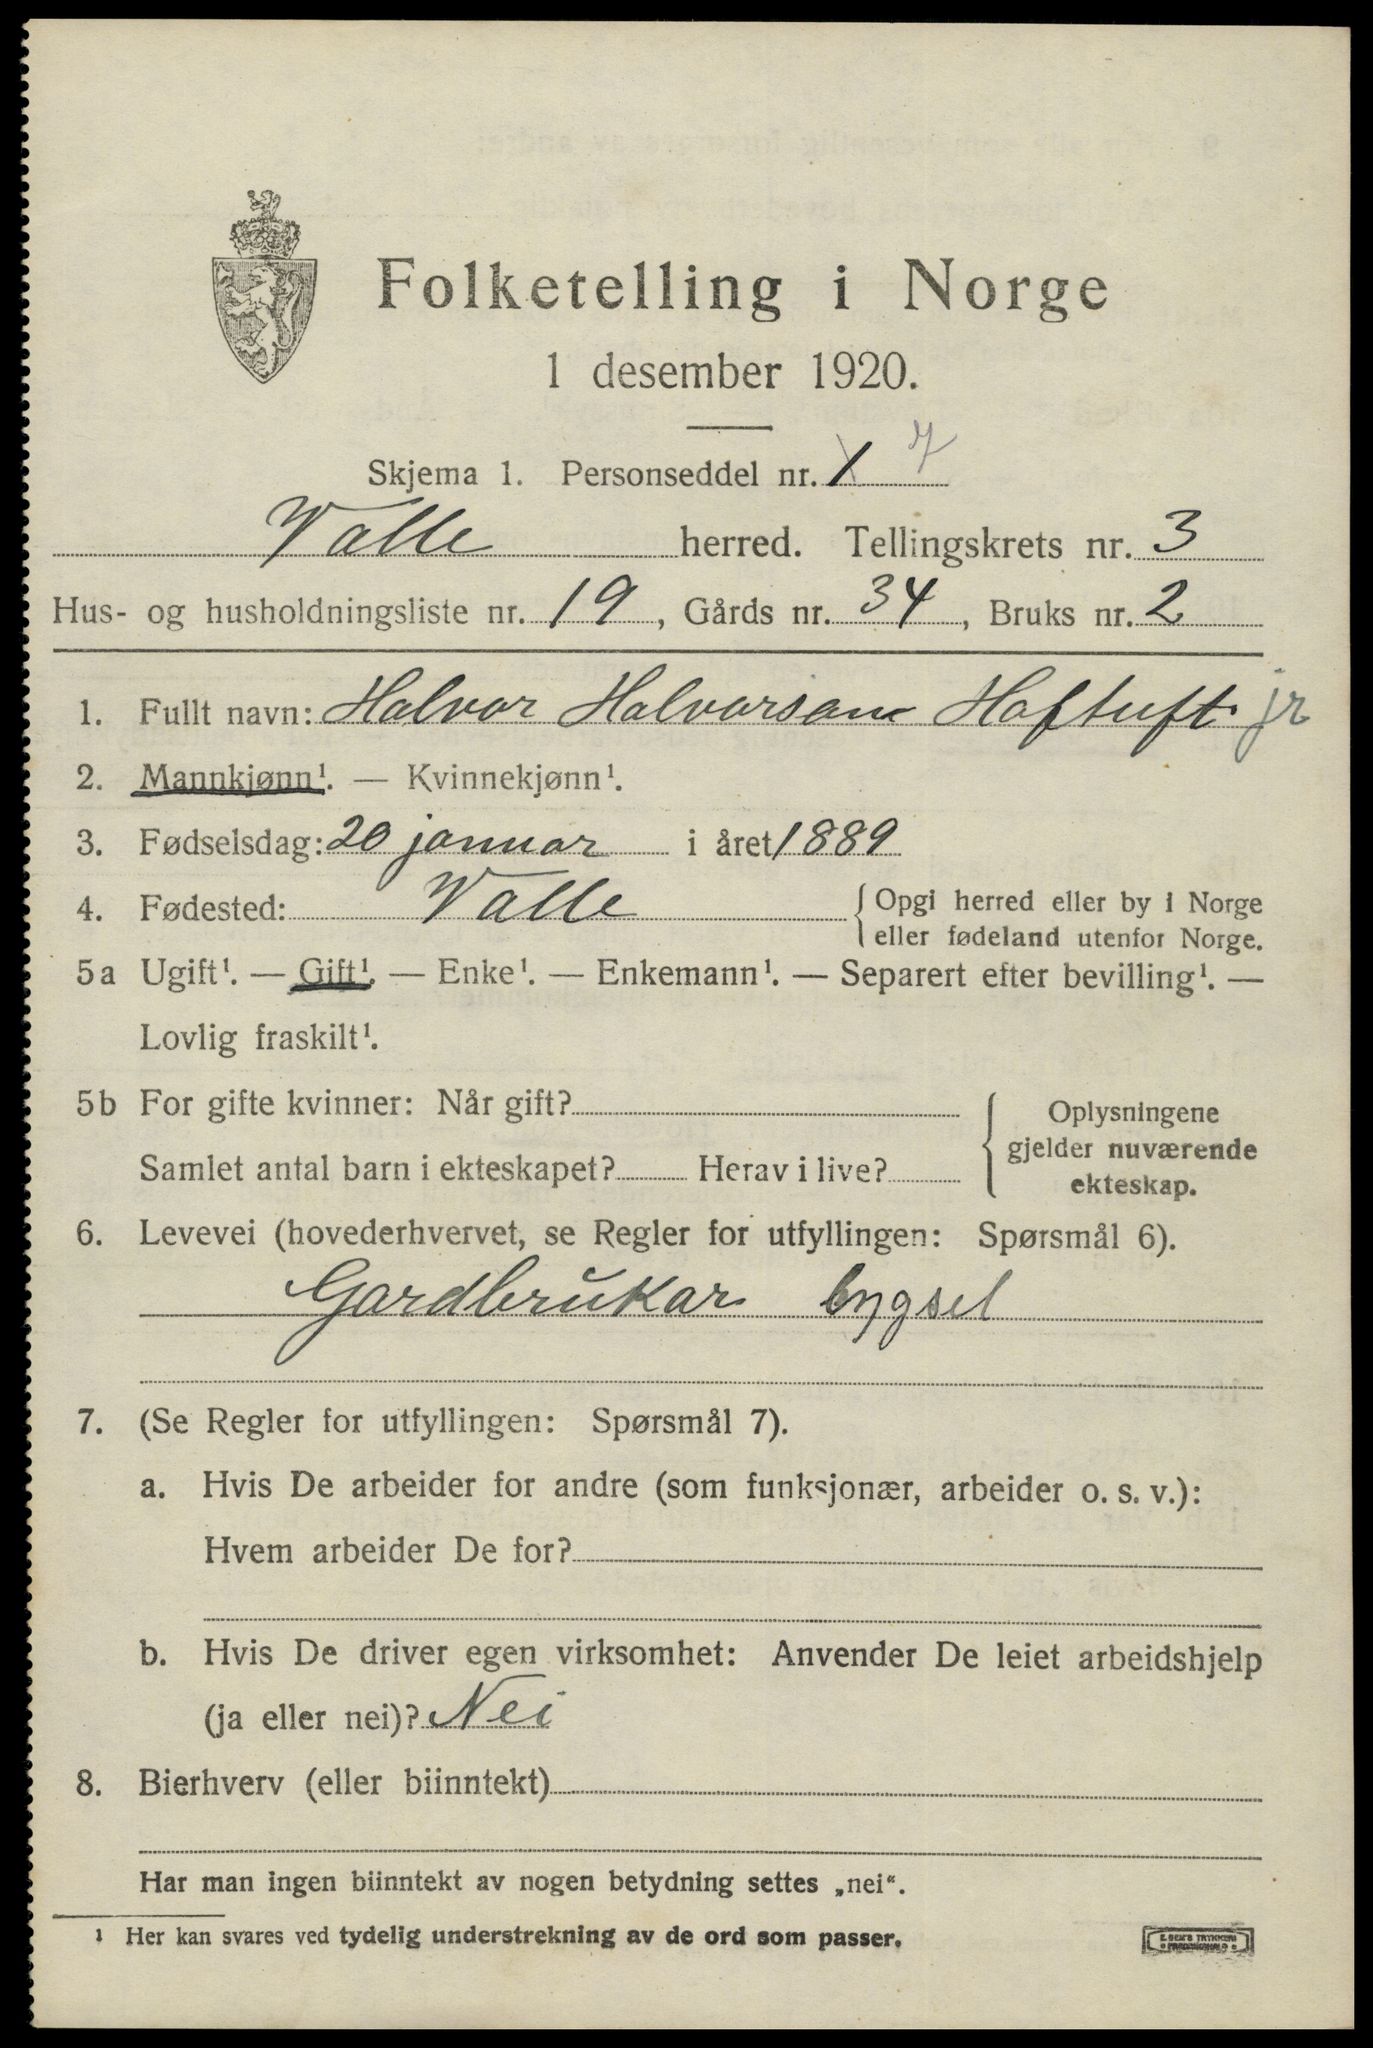 Folketelling i Norge
1 desember 1920.
Skjema 1. Personseddel nr. 1 7
Valle herred. Tellingskrets nr. 3
Hus- og husholdningsliste nr. 19, Gårds nr. 34, Bruks nr. 2
1. Fullt navn: Halvor Halvorson Haftuft jr
2. Mannkjønn¹. — Kvinnekjønn¹.
3. Fødselsdag: 20 januar i året 1889
4. Fødested: Valle {Opgi herred eller by i Norge
eller fødeland utenfor Norge.
5a Ugift¹. — Gift¹. — Enke¹. — Enkemann¹. — Separert efter bevilling¹. —
Lovlig fraskilt¹.
5b For gifte kvinner: Når gift?
Samlet antal barn i ekteskapet? Herav i live?
Oplysningene
gjelder nuværende
ekteskap.
6. Levevei (hovederhvervet, se Regler for utfyllingen: Spørsmål 6).
Gardbrukar bygsel
7. (Se Regler for utfyllingen: Spørsmål 7).
a. Hvis De arbeider for andre (som funksjonær, arbeider o. s. v.):
Hvem arbeider De for?
b. Hvis De driver egen virksomhet: Anvender De leiet arbeidshjelp
(ja eller nei)? Nei
8. Bierhverv (eller biinntekt)
Har man ingen biinntekt av nogen betydning settes „nei".
¹ Her kan svares ved tydelig understrekning av de ord som passer.